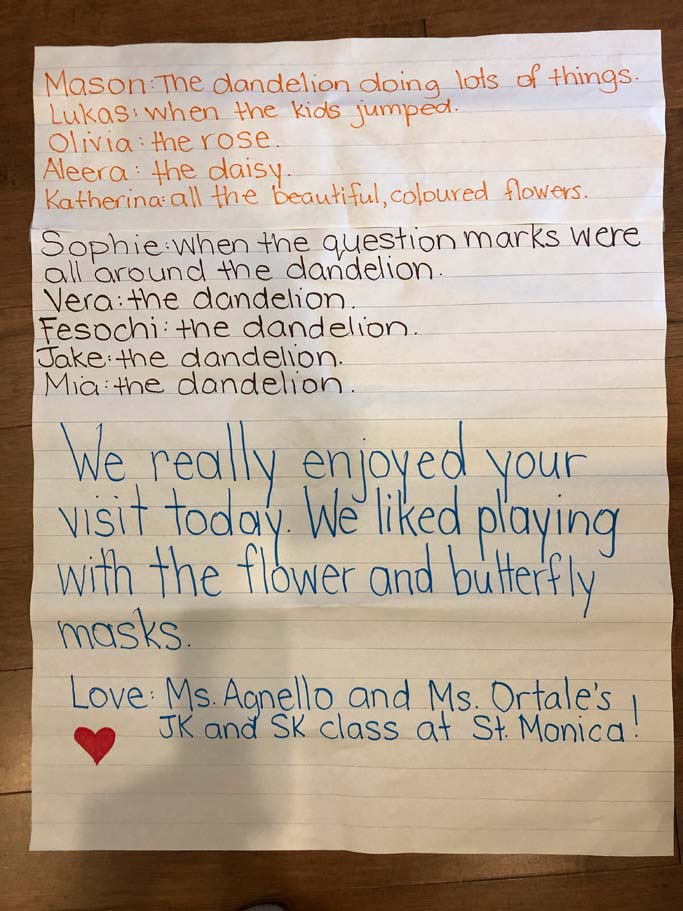 Mason: The dandelion doing lots of things.
Lukas: when the kids jumped.
Olivia: the rose.
Aleera: the daisy.
Katherina: all the beautiful, coloured flowers.
Sophie: when the question marks were
all around the dandelion.
Vera: the dandelion.
Fesochi: the dandelion.
Jake: the dandelion.
Mia: the dandelion.
We really enjoyed your
visit today. We liked playing
with the flower and butterfly
masks.
Love: Ms. Agnello and Ms. Ortale's
JK and SK class at St. Monica!